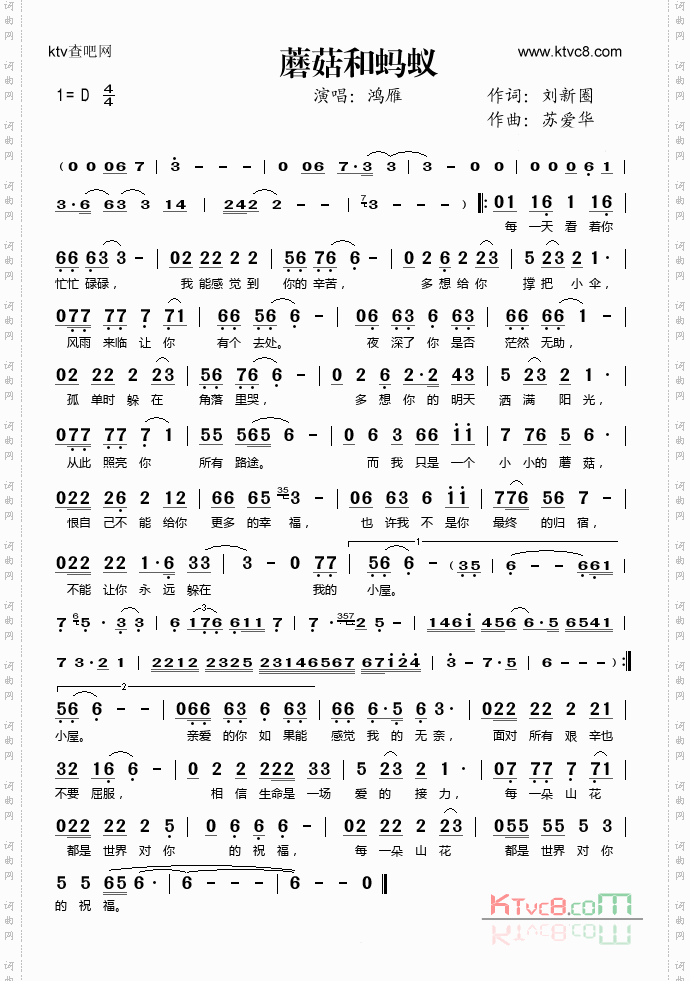 ktv查吧网
蘑菇和蚂蚁
www.ktvc8.com
1= D 4/4
演唱: 鸿雁
作词: 刘新圈
作曲: 苏爱华
( 0 0 06 7 | 3 - - - | 0 06 7·3 3 | 3 - 0 0 | 0 0 0 6 1 |
3·6 63 3 14 | 242 2 - - | 7 3 - - - ) 𝄆 01 16 1 16 |
每 一天 看 着你
66 63 3 - | 02 22 2 2 | 56 76 6 - | 0 2 6 2 23 | 5 23 2 1 · |
忙忙 碌碌, 我 能感 觉 到 你的 辛苦, 多 想 给 你 撑 把 小 伞,
077 77 7 71 | 66 56 6 - | 06 63 6 63 | 66 66 1 - |
风雨 来临 让 你 有个 去处。 夜 深了 你 是否 茫然 无助,
02 22 2 23 | 56 76 6 - | 0 2 6 2·2 43 | 5 23 2 1 · |
孤 单时 躲 在 角落 里哭, 多 想 你 的 明天 洒 满 阳 光,
077 77 7 1 | 55 565 6 - | 0 6 3 66 11 | 7 76 5 6 · |
从此 照亮 你 所有 路途。 而 我 只是 一个 小 小的 蘑 菇,
022 26 2 12 | 66 65 35 3 - | 06 63 6 11 | 776 56 7 - |
恨自 己不 能 给你 更多 的幸 福, 也 许我 不 是你 最终 的归 宿,
022 22 1·6 33 | 3 - 0 77 | 1 56 6 - (35 | 6 - - 661 |
不能 让你 永 远 躲在 我的 小屋。
7 6 5 · 3 3 | 6 3 176 611 7 | 7 · 357 2 5 - | 1461 456 6·5 6541 |
7 3·2 1 | 2212 2325 23146567 67124 | 3 - 7·5 | 6 - - - ) 𝄇
2
56 6 - - | 066 63 6 63 | 66 6·5 6 3· | 022 22 2 21 |
小屋。 亲爱 的你 如 果能 感觉 我 的 无 奈, 面对 所有 艰 辛也
32 16 6 - | 0 2 2 222 33 | 5 23 2 1 · | 07 77 7 71 |
不要 屈服, 相 信 生命是 一场 爱 的 接 力, 每 一朵 山 花
022 22 2 5 | 0 6 6 6 - | 02 22 2 23 | 055 55 5 3 |
都是 世界 对 你 的 祝 福, 每 一朵 山 花 都是 世界 对 你
5 5 65 6 · | 6 - - - | 6 - - 0 ‖
的 祝 福。
KTvc8.com
词曲网